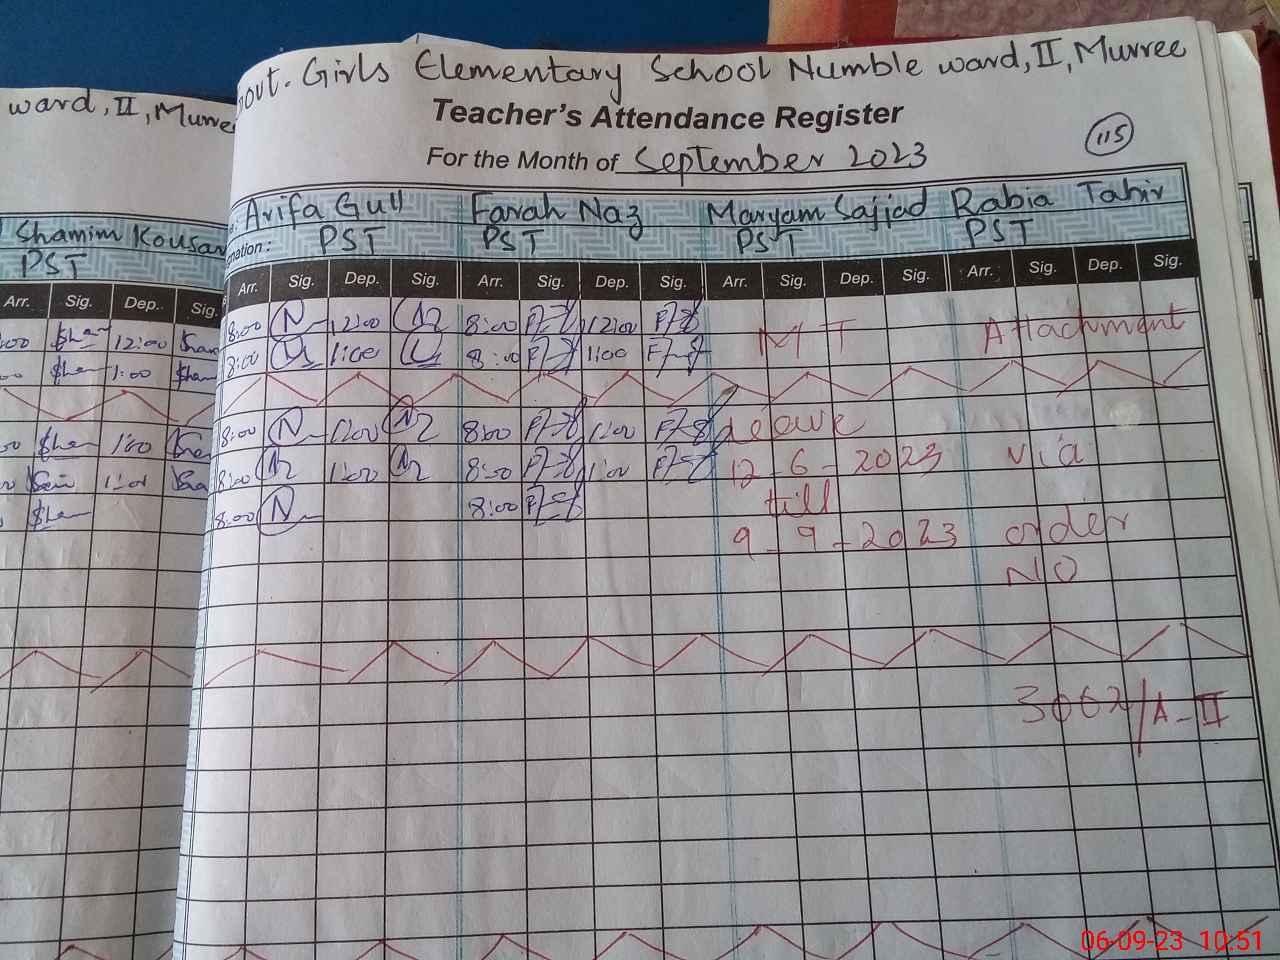 ward, II, Murree
Shamim Kousar
PST
Arr. Sig. Dep. Sig.
:00 Sha 12:00 Sham
00 Sha 1:00 Sha
00 Sha 1:00 Sha
1:00
Sha
Govt. Girls Elementary School Numble ward, II, Murree
Teacher's Attendance Register
For the Month of September 2023
115
Arifa Gull Farah Naz Maryam Sajjad Rabia Tahir
nation: PST PST PST PST
Arr. Sig. Dep. Sig. Arr. Sig. Dep. Sig. Arr. Sig. Dep. Sig. Arr. Sig. Dep. Sig.
8:00 12:00 8:00 12:00 MT Attachment
8:00 1:00 8:00 1:00
8:00 1:00 8:00 1:00 leave
8:00 1:00 8:00 1:00 12-6-2023 via
8:00 8:00 till
9-9-2023 order
NO
3062/A-II
06-09-23 10:51